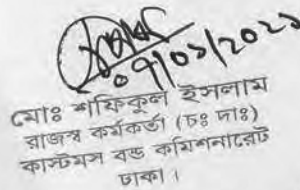 ০৭/০১/২০২১
মোঃ শফিকুল ইসলাম
রাজস্ব কর্মকর্তা (চঃ দাঃ)
কাস্টমস বন্ড কমিশনারেট
ঢাকা।